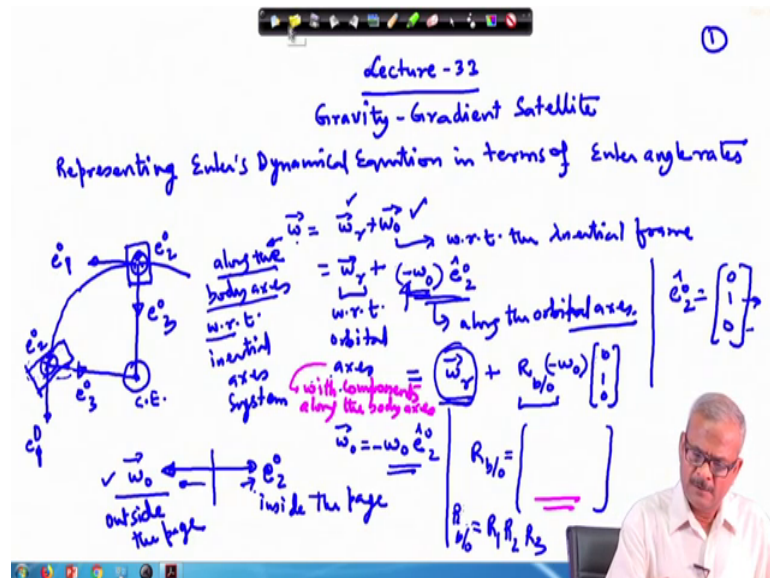 1
Lecture-33
Gravity-Gradient Satellite
Representing Euler's Dynamical Equation in terms of Euler angle rates
ω⃗ = ω⃗r + ω⃗0 ✓
↳ w.r.t. the inertial frame
along the body axes w.r.t. inertial axes system
= ω⃗r + (-ω0) ê2⁰
w.r.t. orbital axes
↳ along the orbital axes.
ê2⁰ = [0 1 0]
with components along the body axes
= ω⃗r + R b/o (-ω0) [0 1 0]
e1⁰ e2⁰
e3⁰
e2⁰
e3⁰
C.E.
e1⁰
ω⃗0 = -ω0 ê2⁰
R b/o = [ ]
✓ ω⃗0 e2⁰
outside the page
inside the page
R b/o = R1 R2 R3